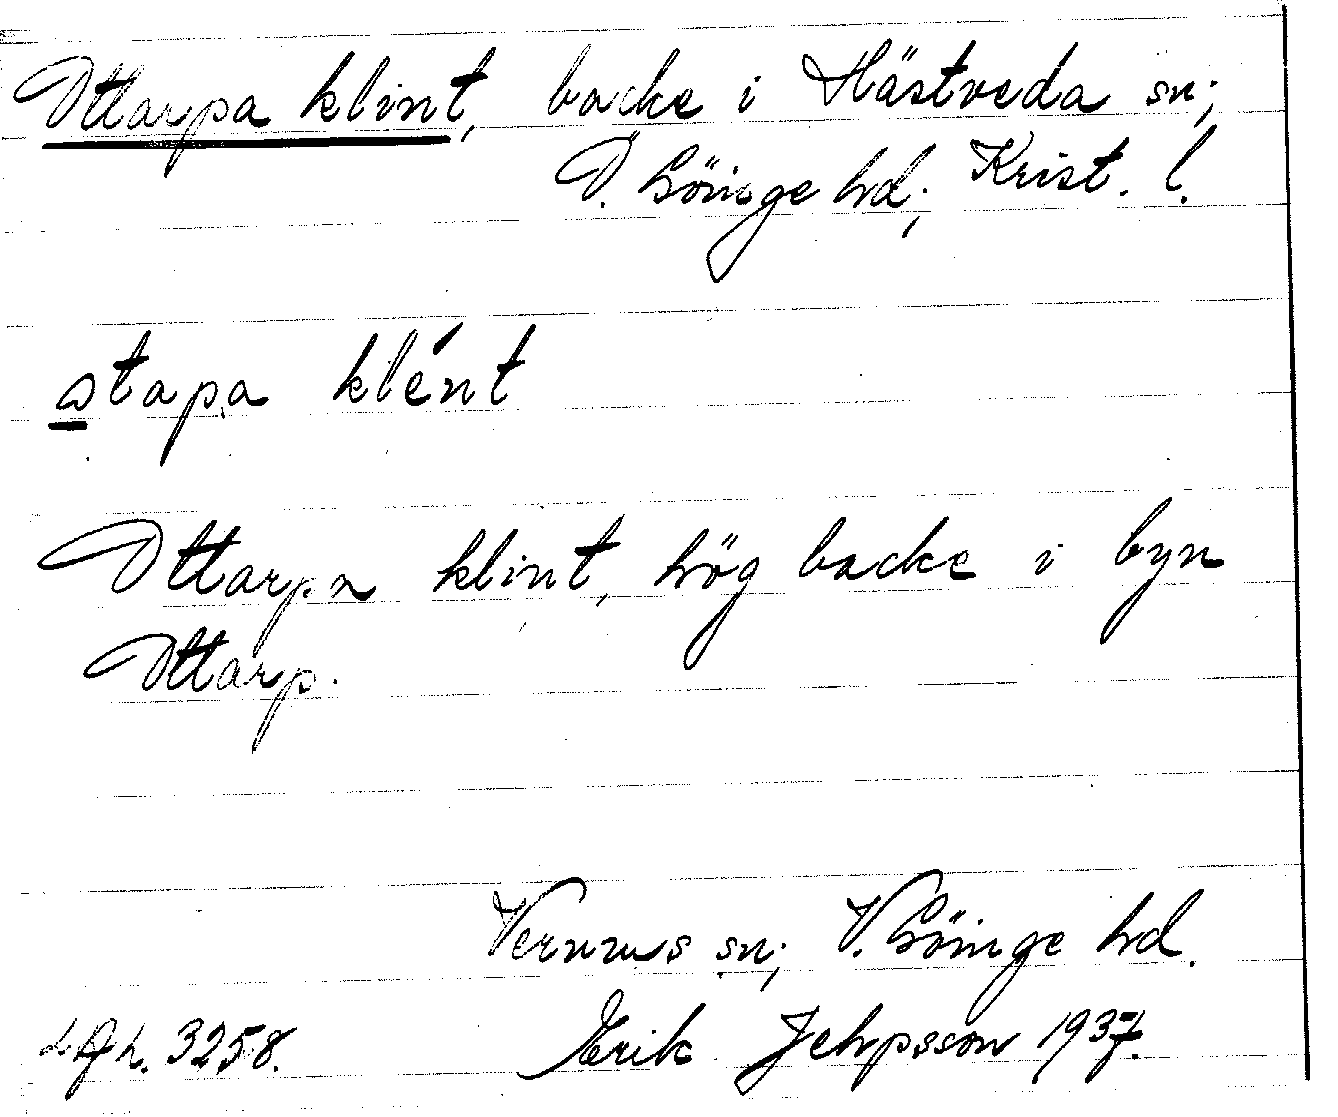 Ottarpa klint, backe i Hästveda sn;
Ö. Göinge hd; Krist. l.
o̲tapa klént
Ottarpa klint, hög backe i byn
Ottarp.
Verums sn; V. Göinge hd.
3258. Erik Jehpsson 1937.